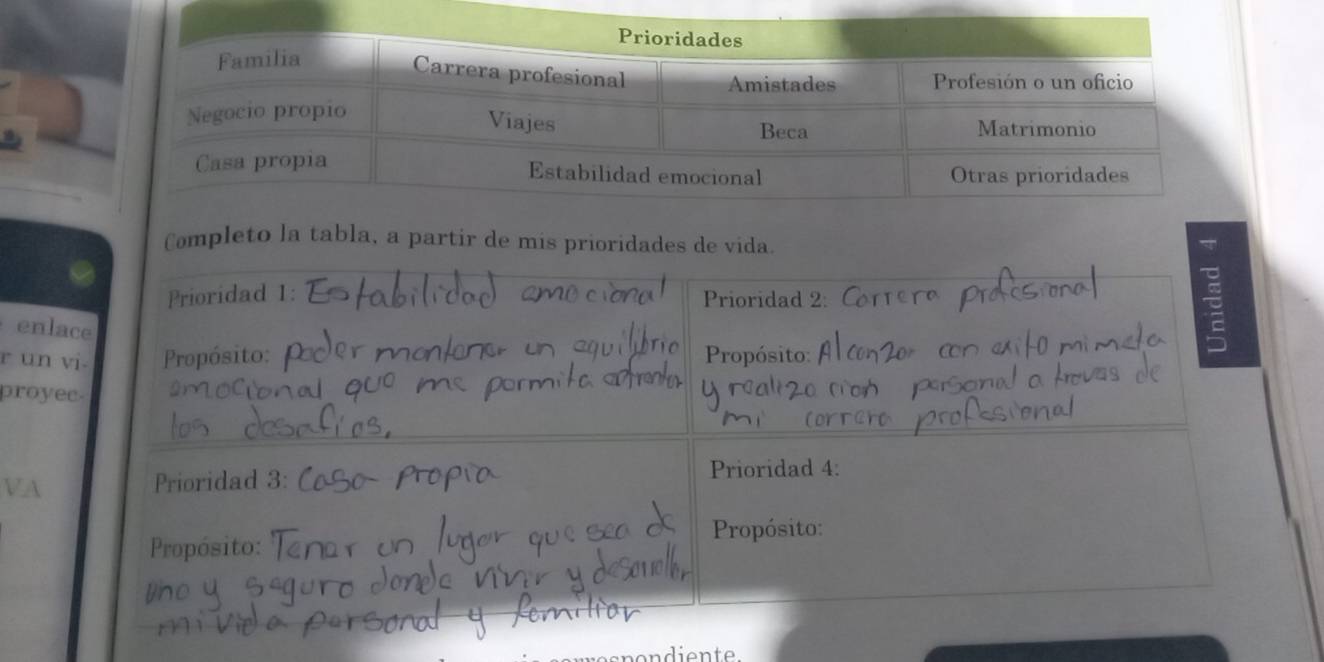 Prioridades
Familia Carrera profesional Amistades Profesión o un oficio
Negocio propio Viajes Beca Matrimonio
Casa propia Estabilidad emocional Otras prioridades
Completo la tabla, a partir de mis prioridades de vida.
Unidad 4
enlace
r un vi-
proyec-
VA
Prioridad 1: Estabilidad emocional
Propósito: poder mantener un equilibrio
emocional que me permita enfrentar
los desafios.
Prioridad 2: Carrera profesional
Propósito: Alcanzar con exito mi meta
y realizacion personal a traves de
mi carrera profesional
Prioridad 3: Casa propia
Propósito: Tener un lugar que sea de
uno y seguro donde vivir y desarrollar
mi vida personal y familiar
Prioridad 4:
Propósito: